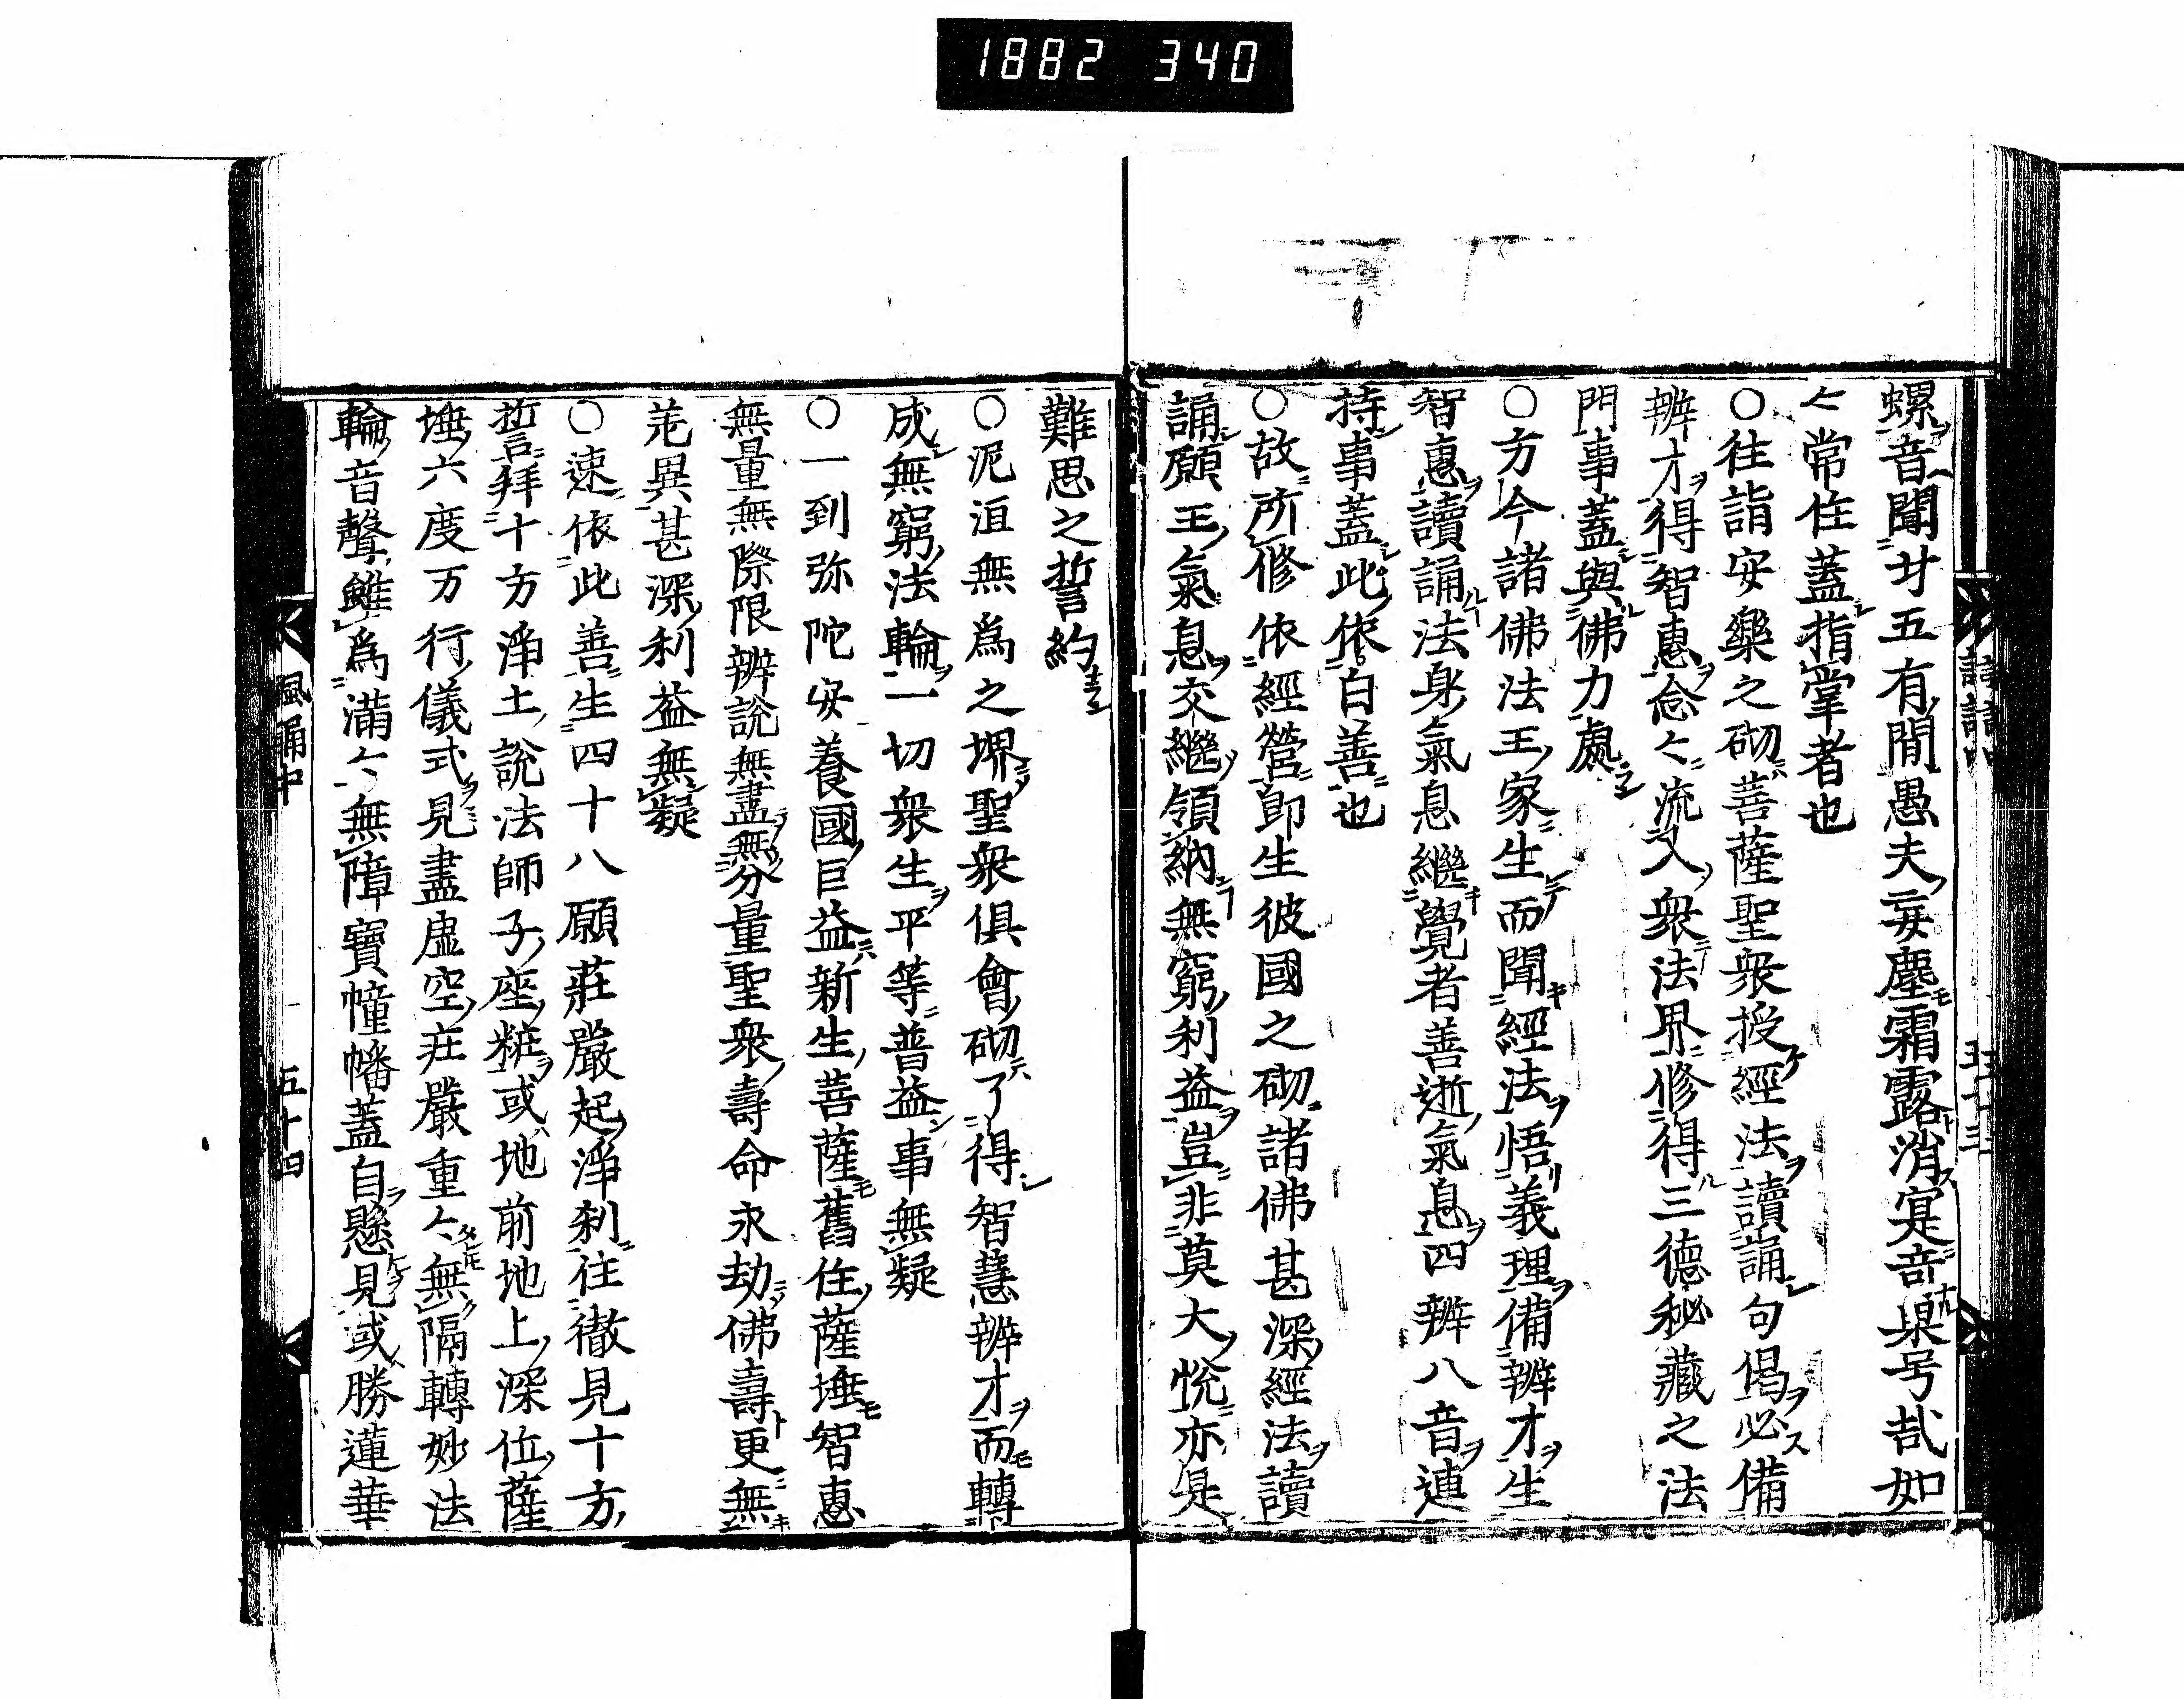 1882 340
螺音聞廿五有間愚夫妄塵霜露消寔音杲号哉如
々常住蓋指掌者也
○往詣安樂之砌菩薩聖衆授經法讀誦句偈必備
辨才得智惠念々流入衆法界修得三德秘藏之法
門事蓋與佛力處
○方今諸佛法王家生而聞經法悟義理備辨才生
智惠讀誦法身氣息繼覺者善逝氣息四辨八音連
持事蓋此依白善也
○故所修依經營卽生彼國之砌諸佛甚深經法讀
誦願王氣息交繼領納無窮利益豈非莫大悅亦是
難思之誓約
○泥洹無爲之堺聖衆俱會砌了得智慧辨才而轉
成無窮法輪一切衆生平等普益事無疑
○一到弥陀安養國巨益新生菩薩舊住薩埵智惠
無量無際限辨說無盡無分量聖衆壽命永劫佛壽更無
差異甚深利益無疑
○速依此善生四十八願莊嚴起淨刹往徹見十方
誓拜十方淨土說法師子座粧或地前地上深位薩
埵六度万行儀式見盡虛空莊嚴重々無隔轉妙法
輪音聲雖爲滿々無障寶幢幡蓋自懸見或勝蓮華
風誦中
五十四